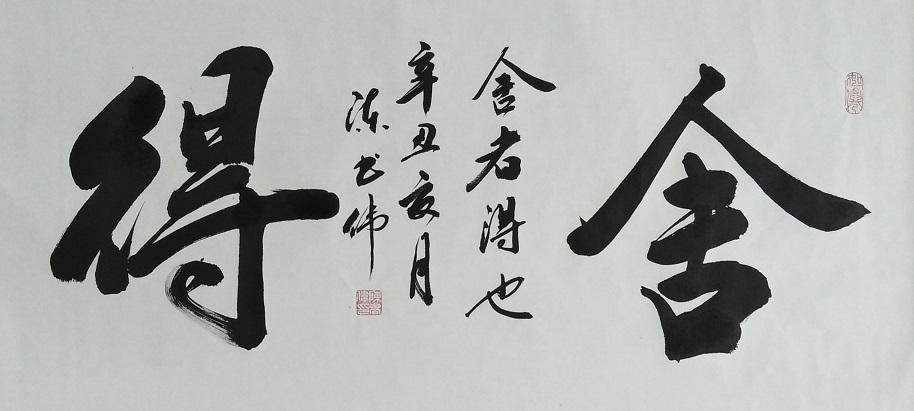 舍
舍者得也
辛丑亥月
陈书伟
得